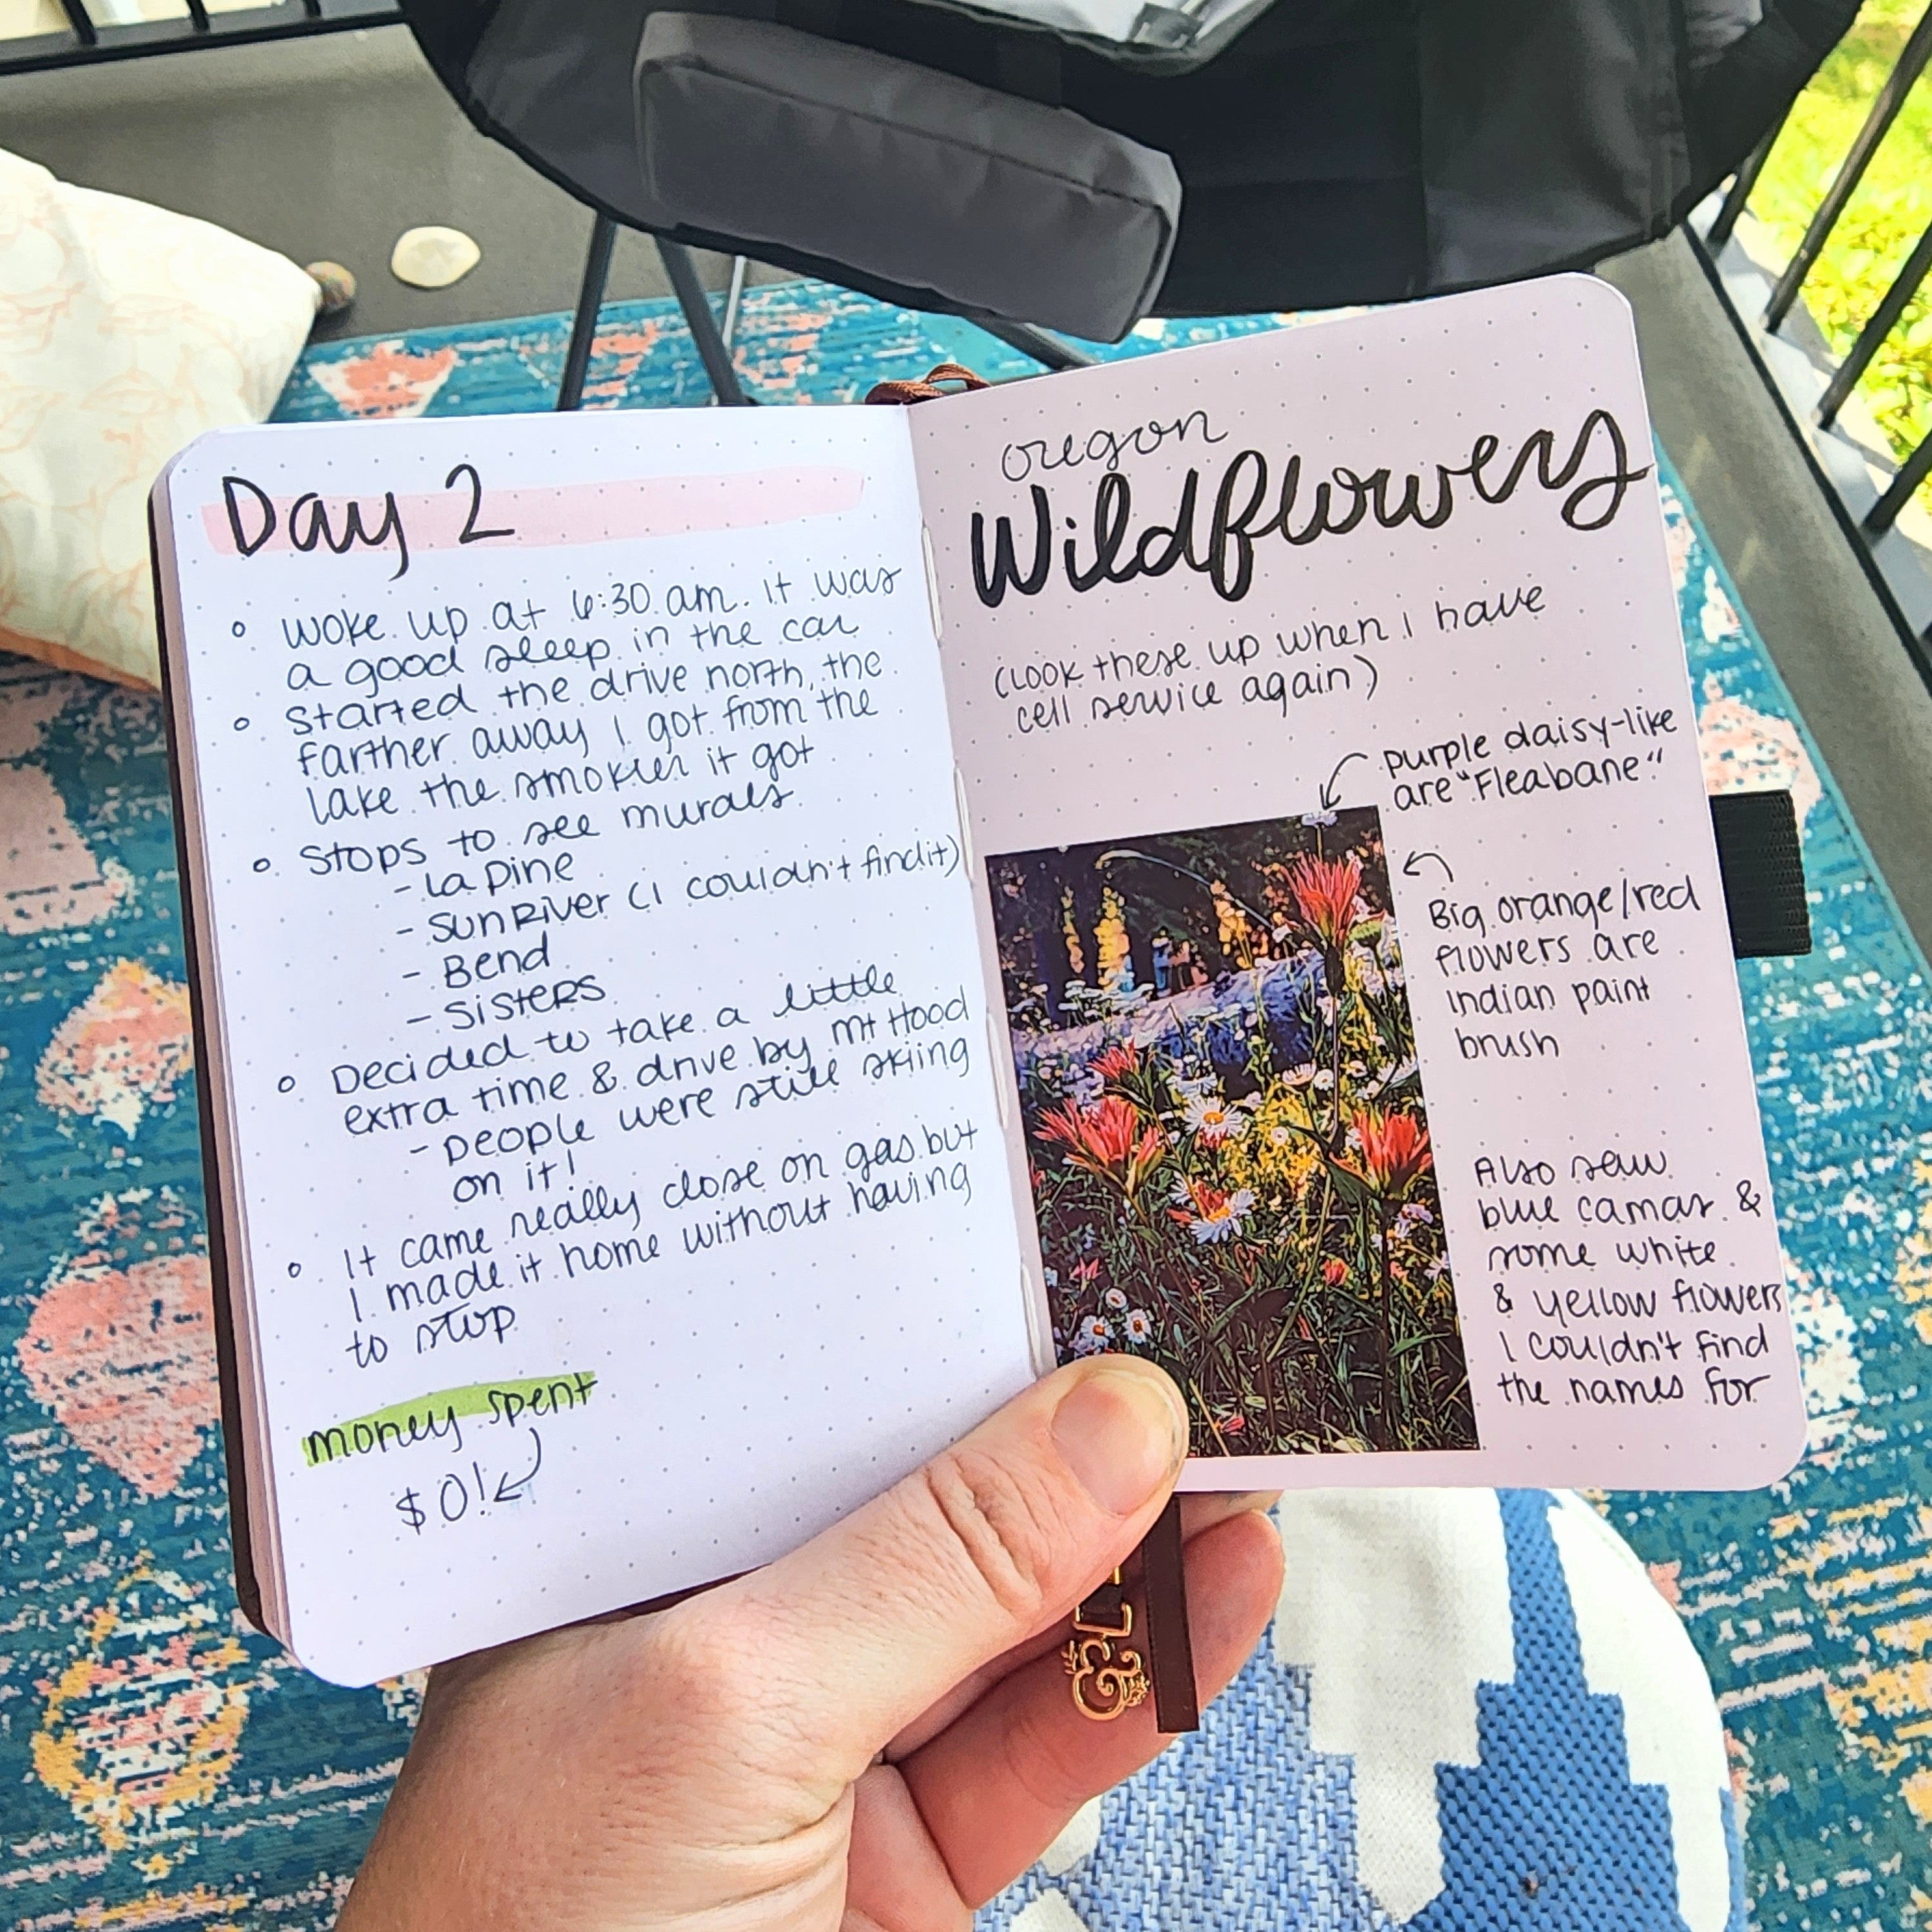 Day 2
woke up at 6:30 am. it was
a good sleep in the car
Started the drive north, the
farther away I got from the
lake the smokier it got
Stops to see murals
- La Pine
- SunRiver (I couldn't find it)
- Bend
- Sisters
Decided to take a little
extra time & drive by Mt Hood
- People were still skiing
on it!
It came really close on gas but
I made it home without having
to stop
money spent
$0!
oregon
Wildflowers
(Look these up when I have
cell service again)
purple daisy-like
are "Fleabane"
Big orange/red
flowers are
indian paint
brush
Also saw
blue camas &
some white
& yellow flowers
I couldn't find
the names for